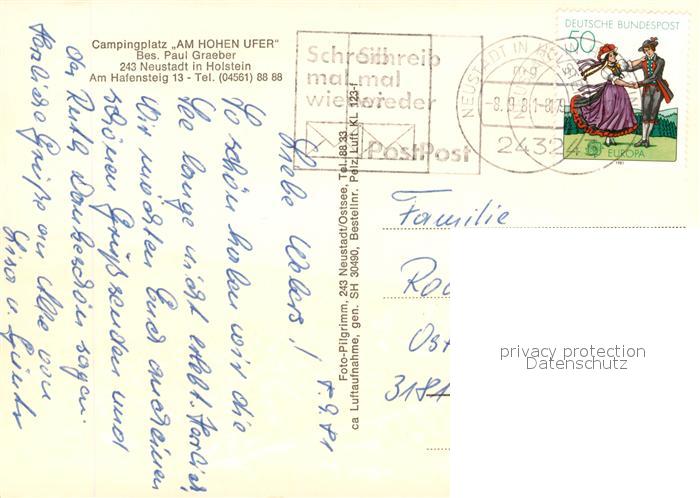 Campingplatz „AM HOHEN UFER"
Bes. Paul Graeber
243 Neustadt in Holstein
Am Hafensteig 13 - Tel. (04561) 88 88
Schreib
mal
wieder
Post
Schreib
mal
wieder
Post
NEUSTADT IN HOLSTEIN
-8.9.81-8
2432
DEUTSCHE BUNDESPOST
50
EUROPA
1981
Foto-Pilgrimm, 243 Neustadt/Ostsee, Tel. 88 33
ca Luftaufnahme, gen. SH 30490, Bestellnr. Pelz Luft KL 123-f
7.9.81
Liebe
So schön haben wir die
See lange nicht erlebt. Herrlich
Wir möchten Euch
schönen Gruß senden und
der Ruth Dankeschön sagen.
Herzliche Grüße an alle von
Lisa u. Günter
Familie
Ro
Ost
3181
privacy protection
Datenschutz